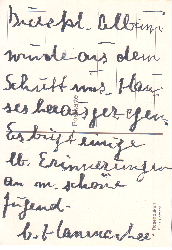 Dieses Album
wurde aus dem
Schutt uns. Hau
ses herausgezogen
Es birgt einige
lb. Erinnerungen
an m. schöne
Jugend.